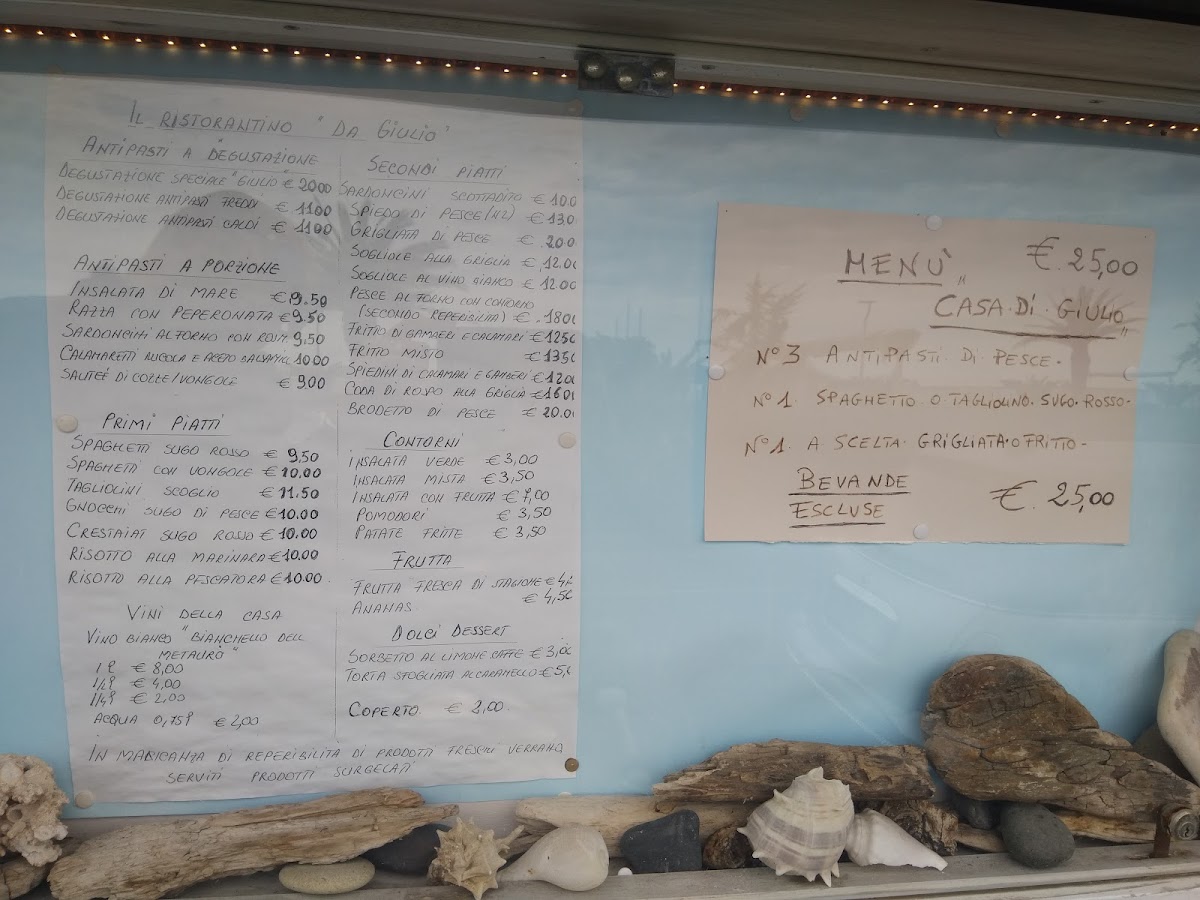 IL RISTORANTINO "DA GIULIO"
ANTIPASTI A DEGUSTAZIONE
DEGUSTAZIONE SPECIALE "GIULIO" € 20.00
DEGUSTAZIONE ANTIPASTI FREDDI € 11.00
DEGUSTAZIONE ANTIPASTI CALDI € 11.00
ANTIPASTI A PORZIONE
INSALATA DI MARE € 9.50
RAZZA CON PEPERONATA € 9.50
SARDONCINI AL FORNO CON ROSM. 9,50
CALAMARETTI RUCOLA E ACETO BALSAMICO 10.00
SAUTEÉ DI COZZE/VONGOLE € 9.00
PRIMI PIATTI
SPAGHETTI SUGO ROSSO € 9,50
SPAGHETTI CON VONGOLE € 10.00
TAGLIOLINI SCOGLIO € 11.50
GNOCCHI SUGO DI PESCE € 10.00
CRESTAIAT SUGO ROSSO € 10.00
RISOTTO ALLA MARINARA € 10.00
RISOTTO ALLA PESCATORA € 10.00
VINI DELLA CASA
VINO BIANCO "BIANCHELLO DEL
METAURO"
1 l € 8,00
1/2 l € 4,00
1/4 l € 2,00
ACQUA 0,75 l € 2,00
SECONDI PIATTI
SARDONCINI SCOTTADITO € 10.0
SPIEDO DI PESCE (N2) € 13.0
GRIGLIATA DI PESCE € 20.0
SOGLIOLE ALLA GRIGLIA € 12.00
SOGLIOLE AL VINO BIANCO € 12.00
PESCE AL FORNO CON CONTORNO
(SECONDO REPERIBILITA) € 18.00
FRITTO DI GAMBERI E CALAMARI € 12.50
FRITTO MISTO € 13.50
SPIEDINI DI CALAMARI E GAMBERI € 12.00
CODA DI ROSPO ALLA GRIGLIA € 16.00
BRODETTO DI PESCE € 20.0
CONTORNI
INSALATA VERDE € 3,00
INSALATA MISTA € 3,50
INSALATA CON FRUTTA € 7,00
POMODORI € 3,50
PATATE FRITTE € 3,50
FRUTTA
FRUTTA FRESCA DI STAGIONE € 4,
ANANAS € 4,50
DOLCI DESSERT
SORBETTO AL LIMONE CAFFE € 3,00
TORTA SFOGLIATA AL CARAMELLO € 5,
COPERTO € 2,00
IN MANCANZA DI REPERIBILITA DI PRODOTTI FRESCHI VERRANO
SERVITI PRODOTTI SURGELATI
MENÙ € 25,00
"CASA DI GIULIO"
N° 3 ANTIPASTI DI PESCE
N° 1 SPAGHETTO O TAGLIOLINO SUGO ROSSO
N° 1 A SCELTA GRIGLIATA O FRITTO
BEVANDE
ESCLUSE € 25,00